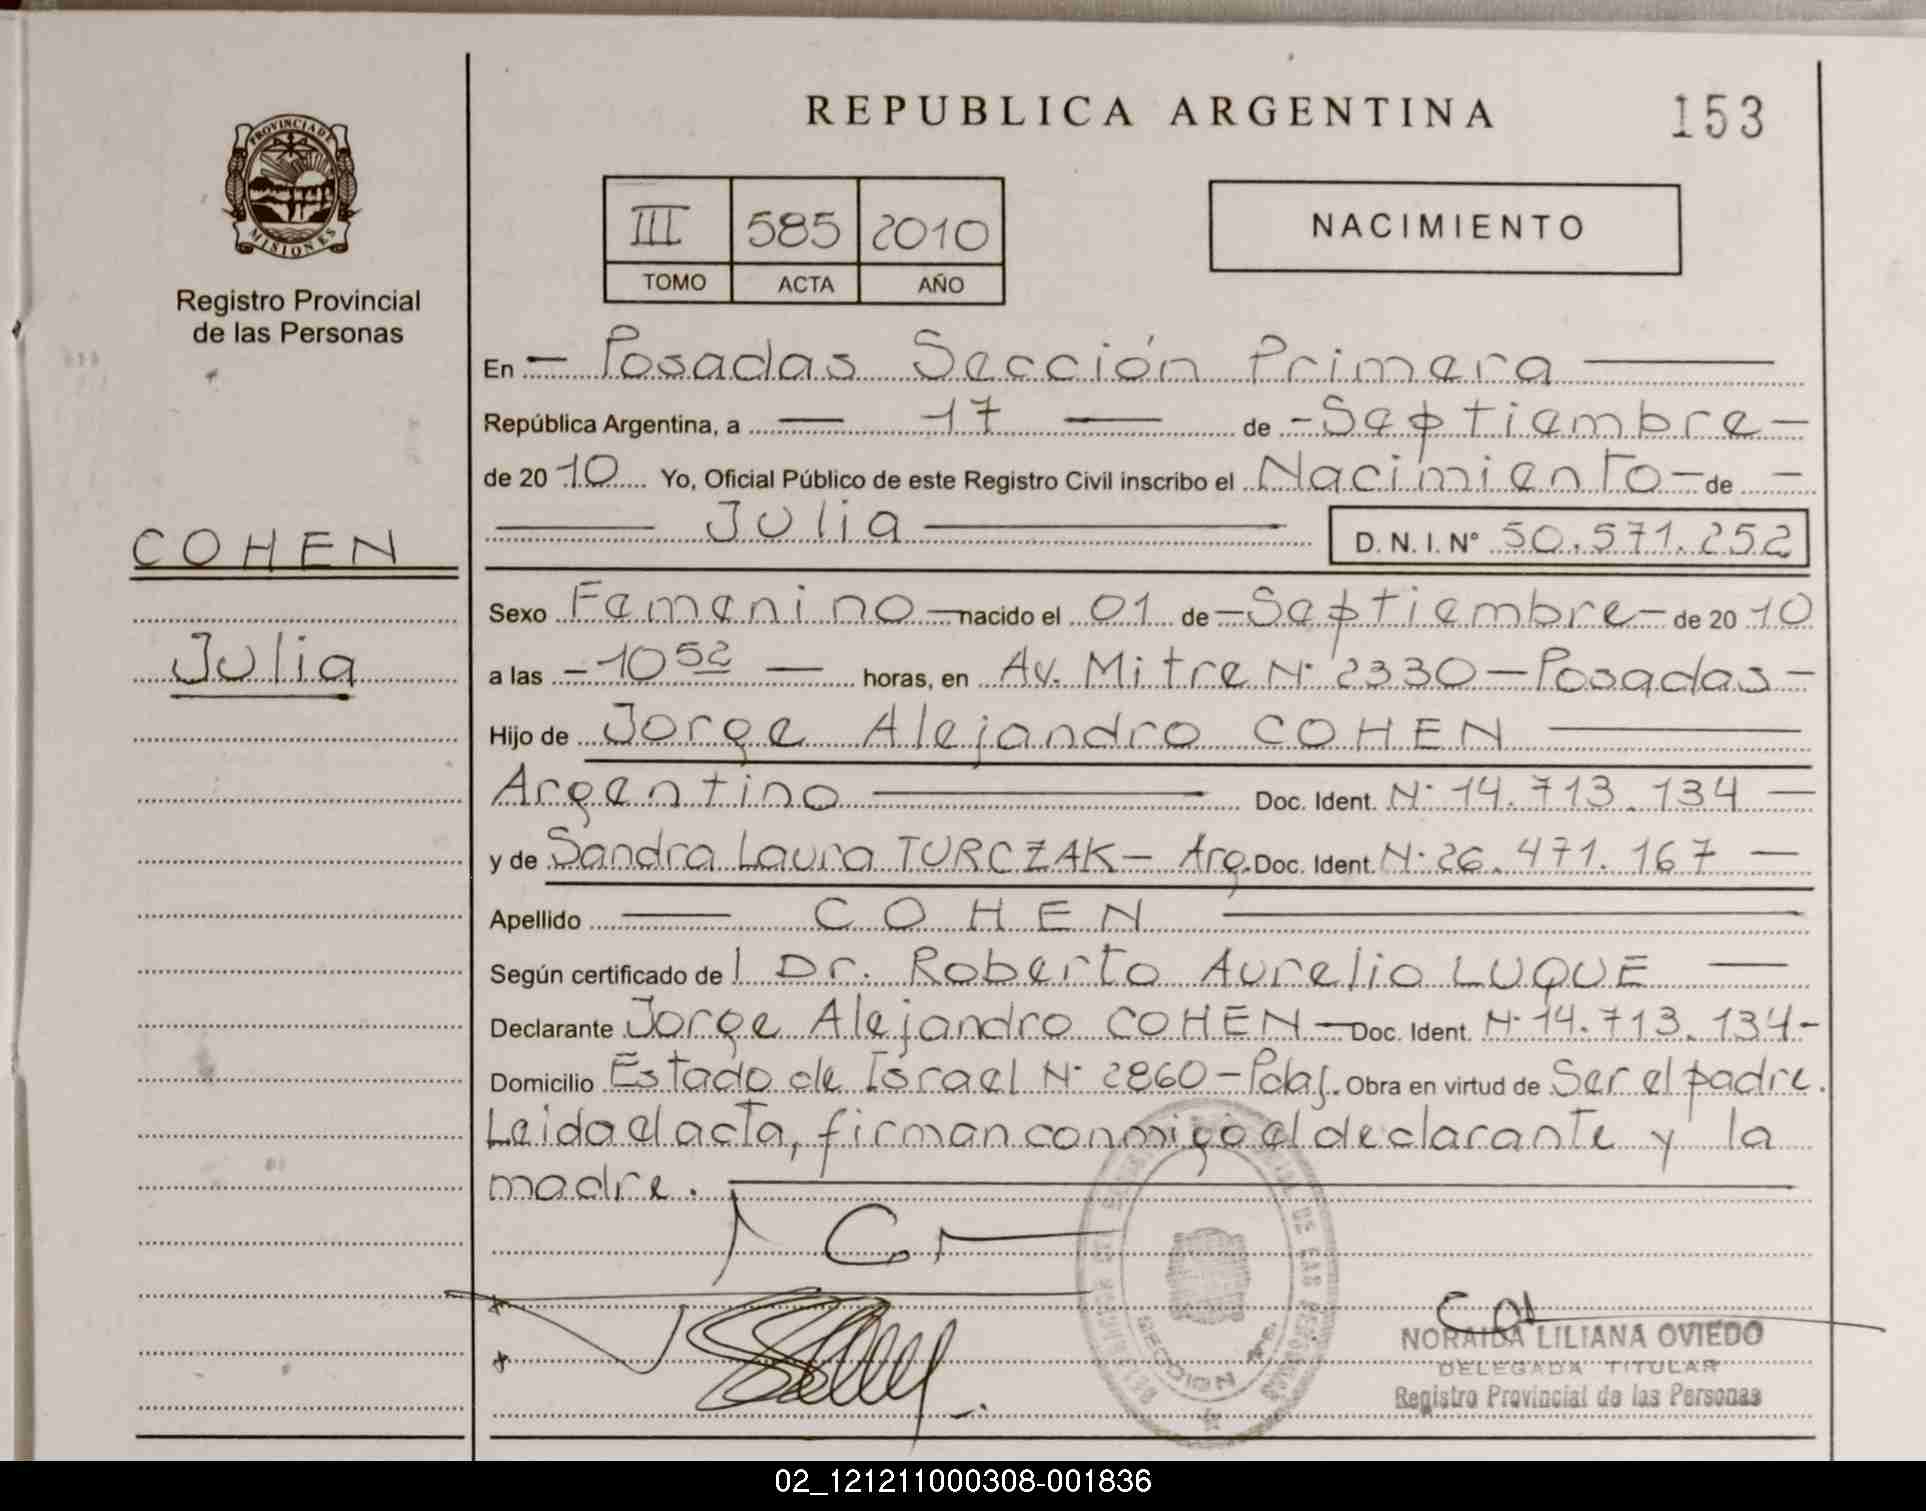 PROVINCIA DE
MISIONES
Registro Provincial
de las Personas
COHEN
Julia
REPUBLICA ARGENTINA
153
III 585 2010
TOMO ACTA AÑO
NACIMIENTO
En Posadas Sección Primera
República Argentina, a 17 de Septiembre
de 2010 Yo, Oficial Público de este Registro Civil inscribo el Nacimiento de
Julia D. N. I. N° 50.571.252
Sexo Femenino nacido el 01 de Septiembre de 2010
a las 10 52 horas, en Av. Mitre N° 2330 - Posadas
Hijo de Jorge Alejandro COHEN
Argentino Doc. Ident. N° 14.713.134
y de Sandra Laura TURCZAK - Arg. Doc. Ident. N° 26.471.167
Apellido COHEN
Según certificado de l Dr. Roberto Aurelio LUQUE
Declarante Jorge Alejandro COHEN Doc. Ident. N° 14.713.134
Domicilio Estado de Israel N° 2860 - Pdas. Obra en virtud de Ser el padre.
Leida el acta, firman conmigo el declarante y la
madre.
SECCION
NORAIDA LILIANA OVIEDO
DELEGADA TITULAR
Registro Provincial de las Personas
02_121211000308-001836